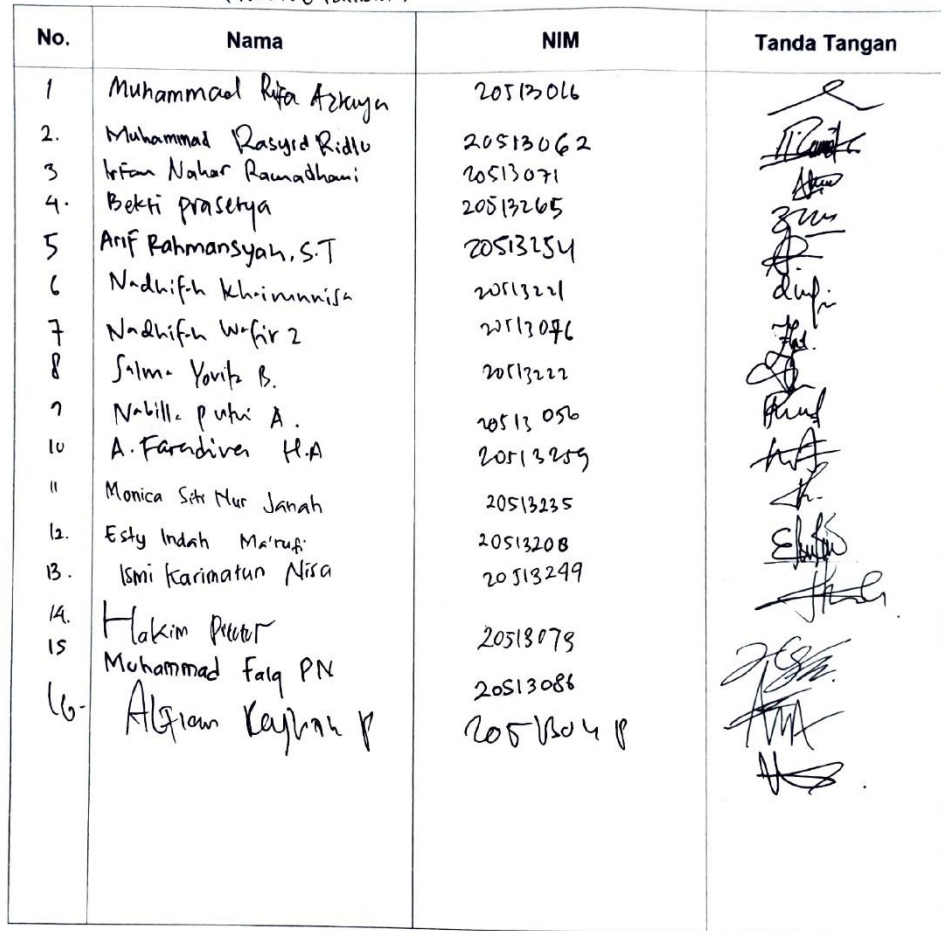 No. Nama NIM Tanda Tangan
1 Muhammad Rifa Azkaya 20513016
2. Muhammad Rasyid Ridlo 20513062
3 Irfan Nahar Ramadhani 20513071
4. Bekti prasetya 20513265
5 Arif Rahmansyah, S.T 20513254
6 Nadhifah Khairunnisa 20513221
7 Nadhifah 20513076
8 Salma Yovita B. 20513222
9 Nabilla putri A. 20513056
10 A. Faradiva H.A 20513259
11 Monica Siti Nur Janah 20513235
12. Esty Indah Ma'rufi 20513208
13. Ismi Karimatun Nisa 20513249
14. Hakim 20513079
15 Muhammad Faiq PN 20513086
16. Alfian P